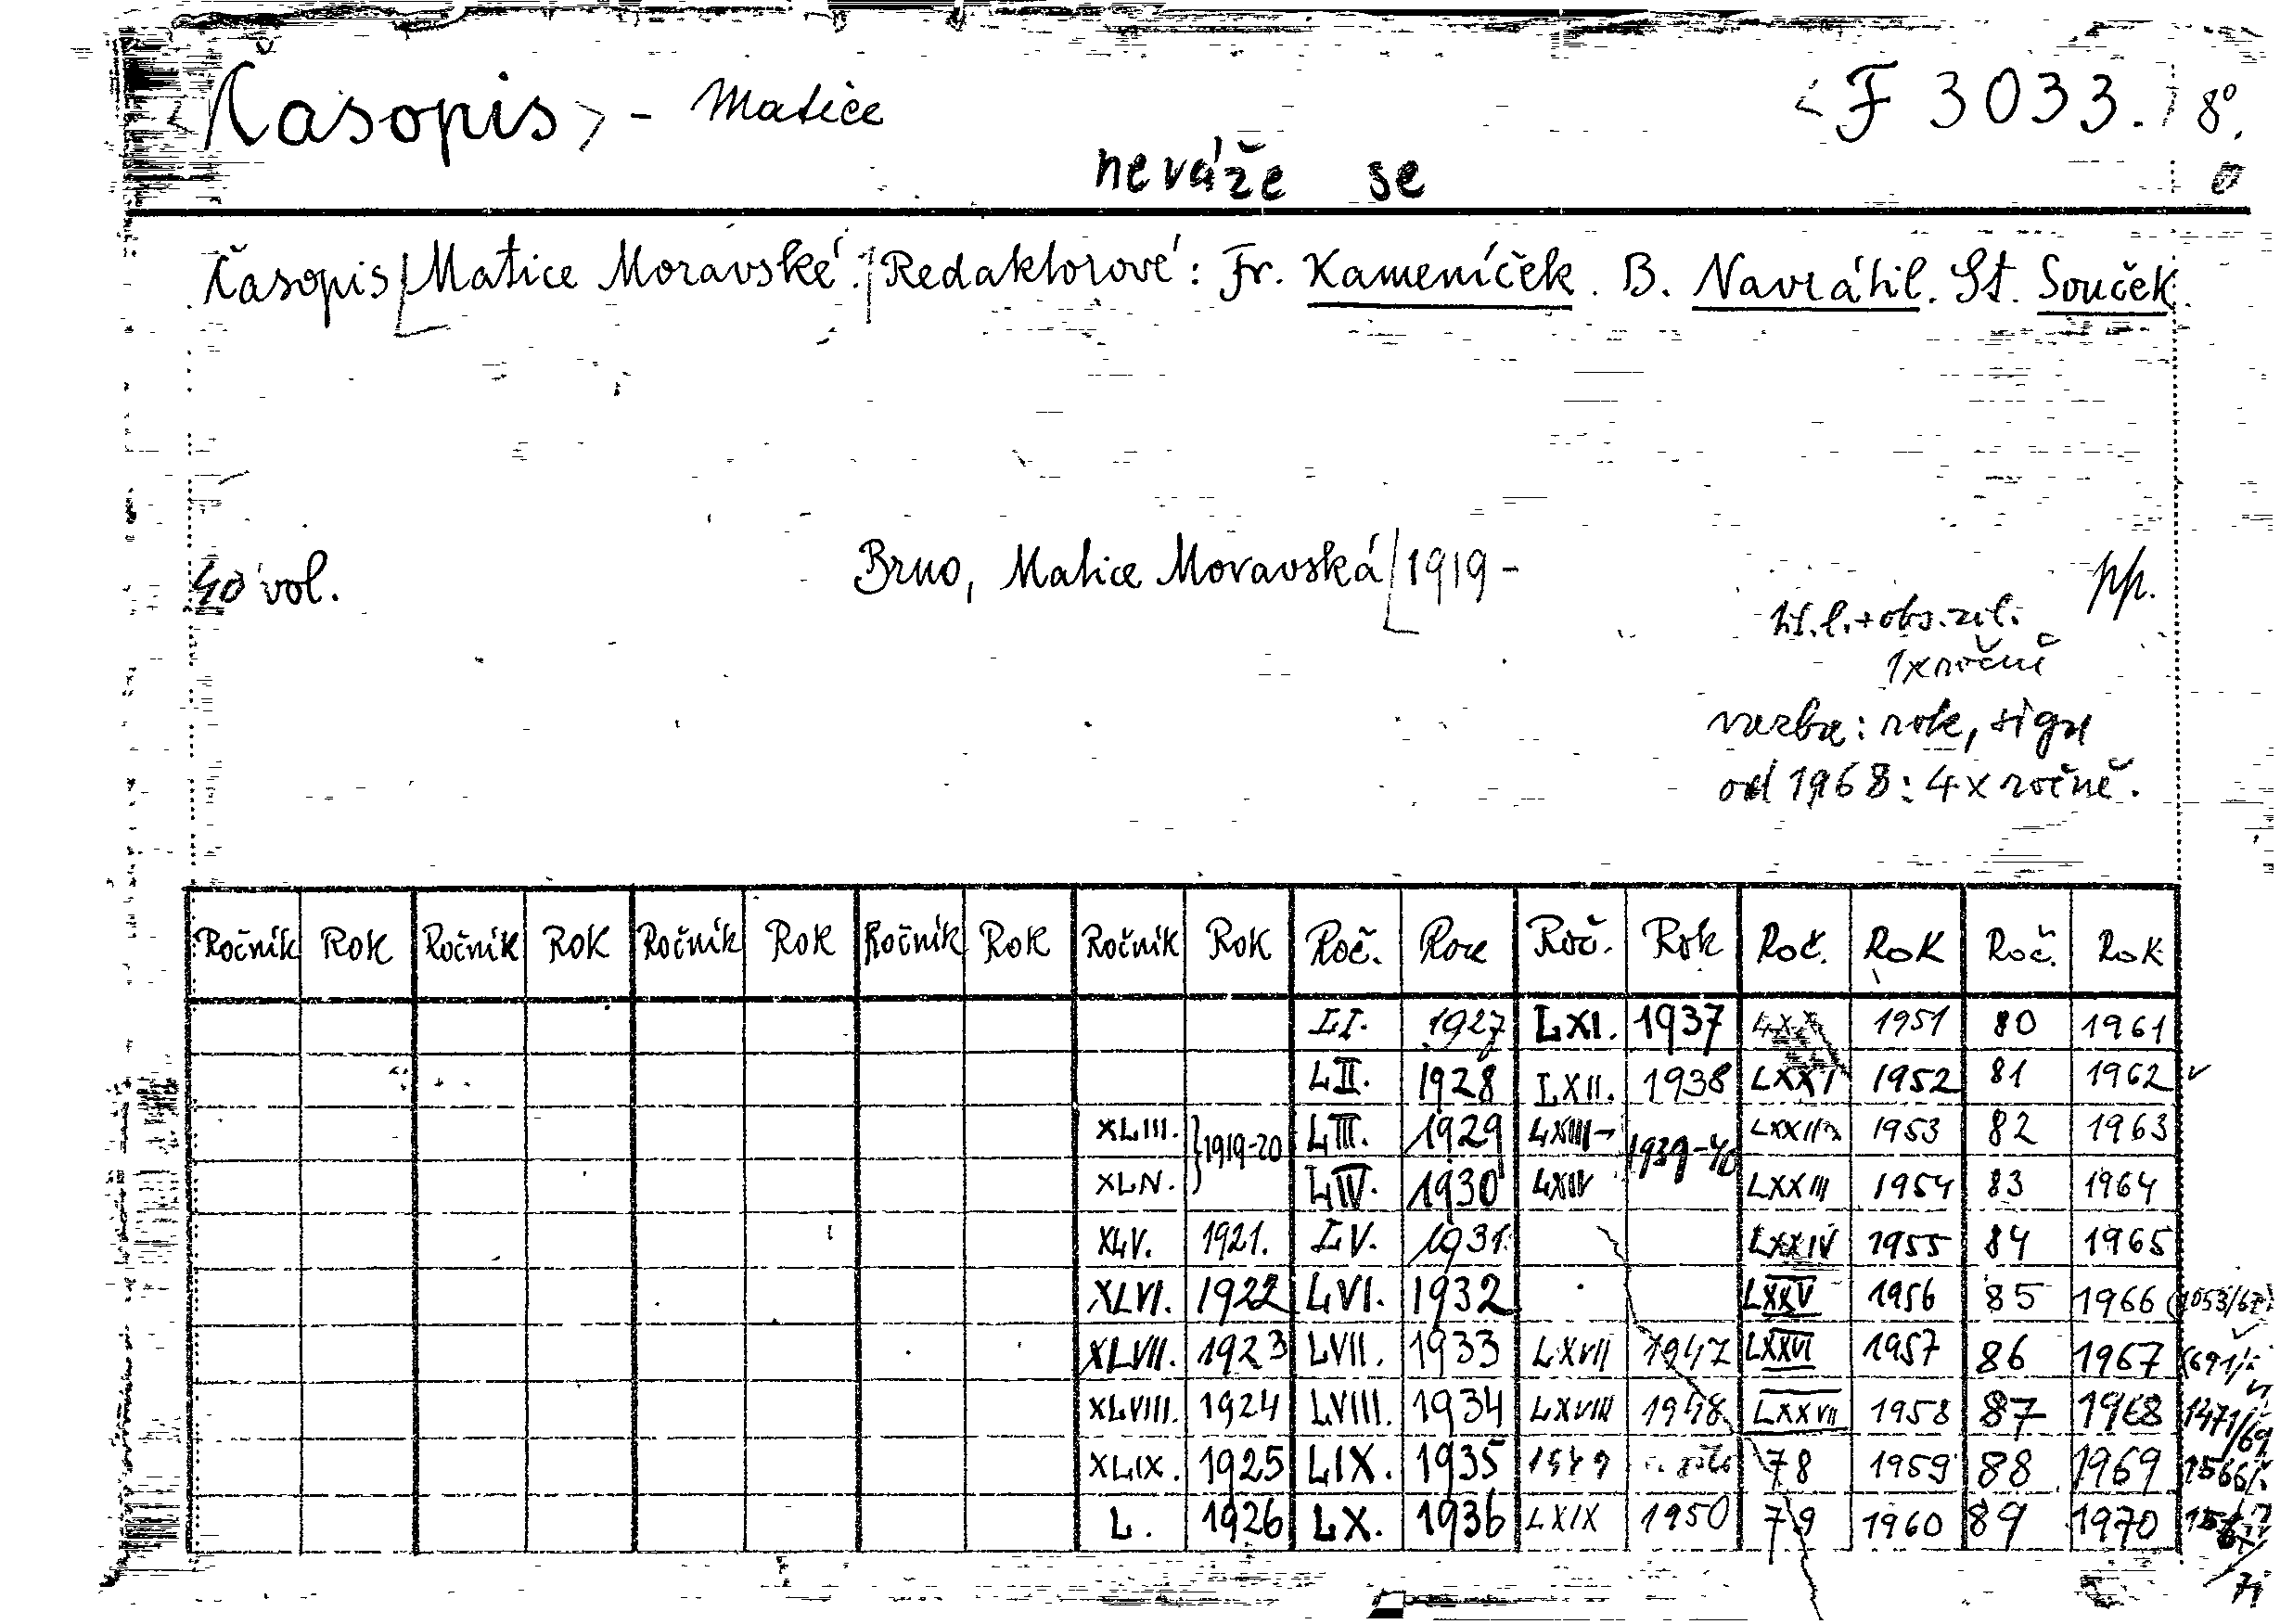 <Časopis> - Matice <F 3033.> 8°.
neváže se
Časopis Matice Moravské. Redaktorové: Fr. Kameníček. B. Navrátil. St. Souček.
40 vol. Brno, Matice Moravská 1919- pp.
tit. l. + obs. zvl.
1x ročně
vazba: rok, sign
od 1968: 4x ročně.
Ročník Rok Ročník Rok Ročník Rok Ročník Rok Ročník Rok Roč. Rok Roč. Rok Roč. Rok Roč. Rok
LI. 1927 LXI. 1937 LXX 1951 80 1961
LII. 1928 LXII. 1938 LXXI 1952 81 1962 v
XLIII. } 1919-20 LIII. 1929 LXIII- 1939-40 LXXII 1953 82 1963
XLIV. LIV. 1930 LXIV LXXIII 1954 83 1964
XLV. 1921. LV. 1931. LXXIV 1955 84 1965
XLVI. 1922 LVI. 1932 LXXV 1956 85 1966 (1053/67)
XLVII. 1923 LVII. 1933 LXVII 1947 LXXVI 1957 86 1967
XLVIII. 1924 LVIII. 1934 LXVIII 1948 LXXVII 1958 87 1968 1471/69
XLIX. 1925 LIX. 1935 1949 78 1959 88 1969
L. 1926 LX. 1936 LXIX 1950 79 1960 89 1970